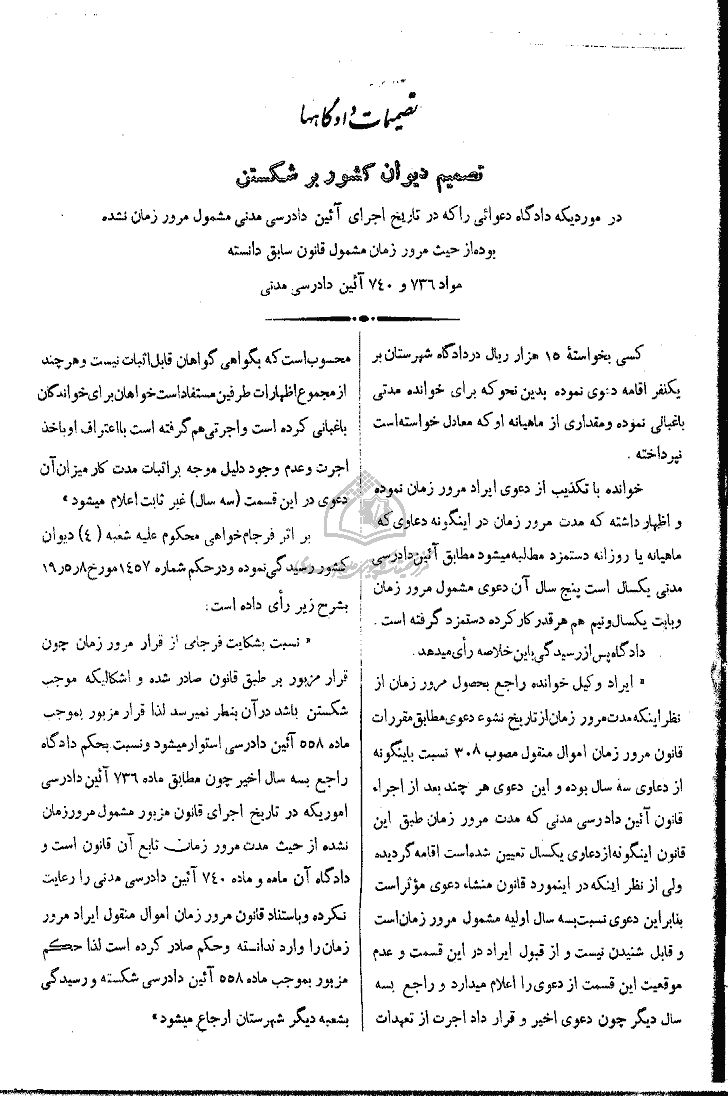 تصمیمات دادگاهها
تصمیم دیوان کشور بر شکستن
در موردیکه دادگاه دعوائی را که در تاریخ اجرای آئین دادرسی مدنی مشمول مرور زمان نشده
بوده از حیث مرور زمان مشمول قانون سابق دانسته
مواد ۷۳۶ و ۷۴۰ آئین دادرسی مدنی
کسی بخواستهٔ ۱۵ هزار ریال در دادگاه شهرستان بر
یکنفر اقامه دعوی نموده بدین نحو که برای خوانده مدتی
باغبانی نموده و مقداری از ماهیانه او که معادل خواسته است
نپرداخته .
خوانده با تکذیب از دعوی ایراد مرور زمان نموده
و اظهار داشته که مدت مرور زمان در اینگونه دعاوی که
ماهیانه یا روزانه دستمزد مطالبه میشود مطابق آئین دادرسی
مدنی یکسال است پنج سال آن دعوی مشمول مرور زمان
و بابت یکسال و نیم هم هر قدر کار کرده دستمزد گرفته است .
دادگاه پس از رسیدگی باین خلاصه رأی میدهد .
« ایراد وکیل خوانده راجع بحصول مرور زمان از
نظر اینکه مدت مرور زمان از تاریخ نشوء دعوی مطابق مقررات
قانون مرور زمان اموال منقول مصوب ۳۰۸ نسبت باینگونه
از دعاوی سه سال بوده و این دعوی هر چند بعد از اجراء
قانون آئین دادرسی مدنی که مدت مرور زمان طبق این
قانون اینگونه از دعاوی یکسال تعیین شده است اقامه گردیده
ولی از نظر اینکه در اینمورد قانون منشاء دعوی مؤثر است
بنابراین دعوی نسبت بسه سال اولیه مشمول مرور زمان است
و قابل شنیدن نیست و از قبول ایراد در این قسمت و عدم
موقعیت این قسمت از دعوی را اعلام میدارد و راجع بسه
سال دیگر چون دعوی اخیر و قرار داد اجرت از تعهدات
محسوب است که بگواهی گواهان قابل اثبات نیست و هر چند
از مجموع اظهارات طرفین مستفاد است خواهان برای خواندگان
باغبانی کرده است و اجرتی هم گرفته است با اعتراف او باخذ
اجرت و عدم وجود دلیل موجه بر اثبات مدت کار میزان آن
دعوی در این قسمت (سه سال) غیر ثابت اعلام میشود »
بر اثر فرجام خواهی محکوم علیه شعبه (۴) دیوان
کشور رسیدگی نموده و در حکم شماره ۱۴۵۷ مورخ ۱۹ر۵ر۸
بشرح زیر رأی داده است:
« نسبت بشکایت فرجامی از قرار مرور زمان چون
قرار مزبور بر طبق قانون صادر شده و اشکالیکه موجب
شکستن باشد در آن بنظر نمیرسد لذا قرار مزبور بموجب
ماده ۵۵۸ آئین دادرسی استوار میشود و نسبت بحکم دادگاه
راجع بسه سال اخیر چون مطابق ماده ۷۳۶ آئین دادرسی
اموریکه در تاریخ اجرای قانون مزبور مشمول مرور زمان
نشده از حیث مدت مرور زمان تابع آن قانون است و
دادگاه آن ماده و ماده ۷۴۰ آئین دادرسی مدنی را رعایت
نکرده و باستناد قانون مرور زمان اموال منقول ایراد مرور
زمان را وارد ندانسته و حکم صادر کرده است لذا حکم
مزبور بموجب ماده ۵۵۸ آئین دادرسی شکسته و رسیدگی
بشعبه دیگر شهرستان ارجاع میشود »